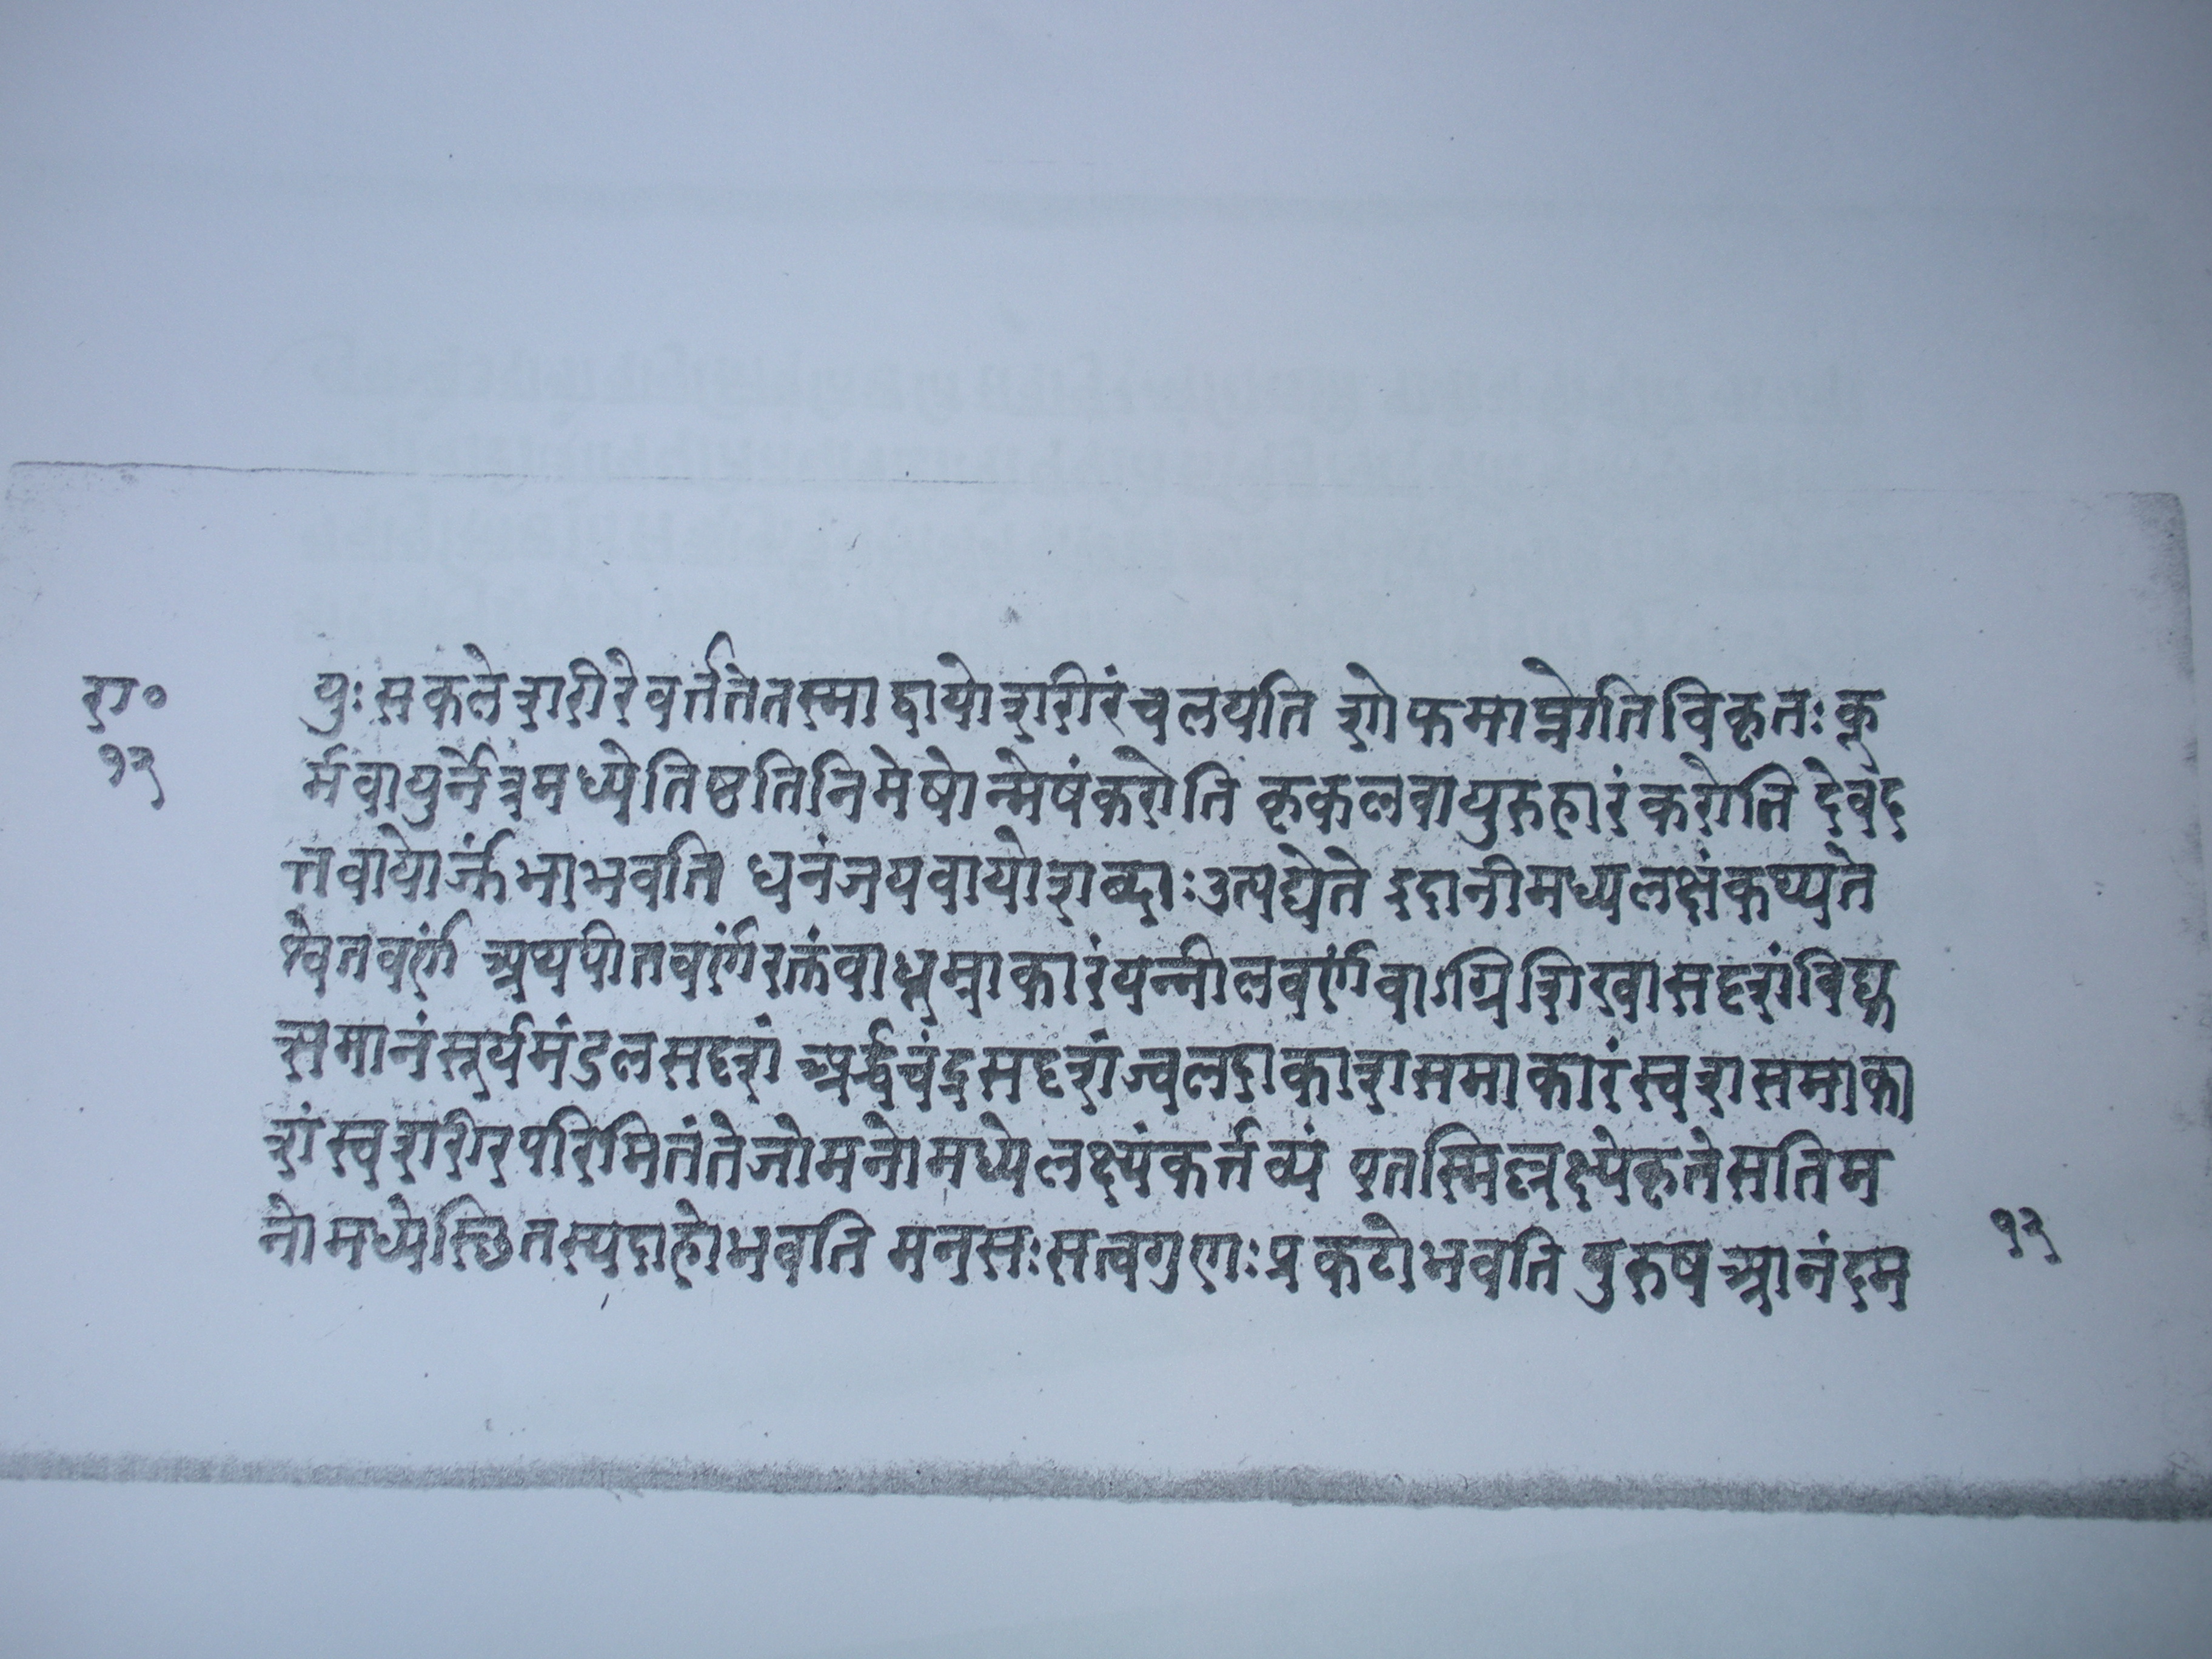 रा०
१२
युः सकले शरीरे वर्त्तते तस्माद्वायो शरीरं चलयति शोफमाप्नोति विकृतः कू
र्मवायुर्नेत्रमध्ये तिष्ठति निमेषोन्मेषं करोति कृकलवायुरुद्गारं करोति देवद
त्तवायोर्जृंभा भवति धनंजयवायो शब्दाः उत्पद्येते इदानी मध्यलक्षं कथ्यते
श्वेतवर्णं अथ पीतवर्णं रक्तं वा धूम्राकारं यन्नीलवर्णं वा ऽग्निशिखासदृशं विद्यु
त्समानं सूर्यमंडलसदृशं अर्द्धचंद्रसदृशं ज्वलदाकाशसमाकारं स्वशसमाका
शं स्वशरीरपरिमितं तेजो मनोमध्ये लक्ष्यं कर्त्तव्यं एतस्मिल्लक्ष्ये कृते सति म
नोमध्ये स्छितस्य दाहो भवति मनसः सत्वगुणः प्रकटो भवति पुरुष आनंदम
१२